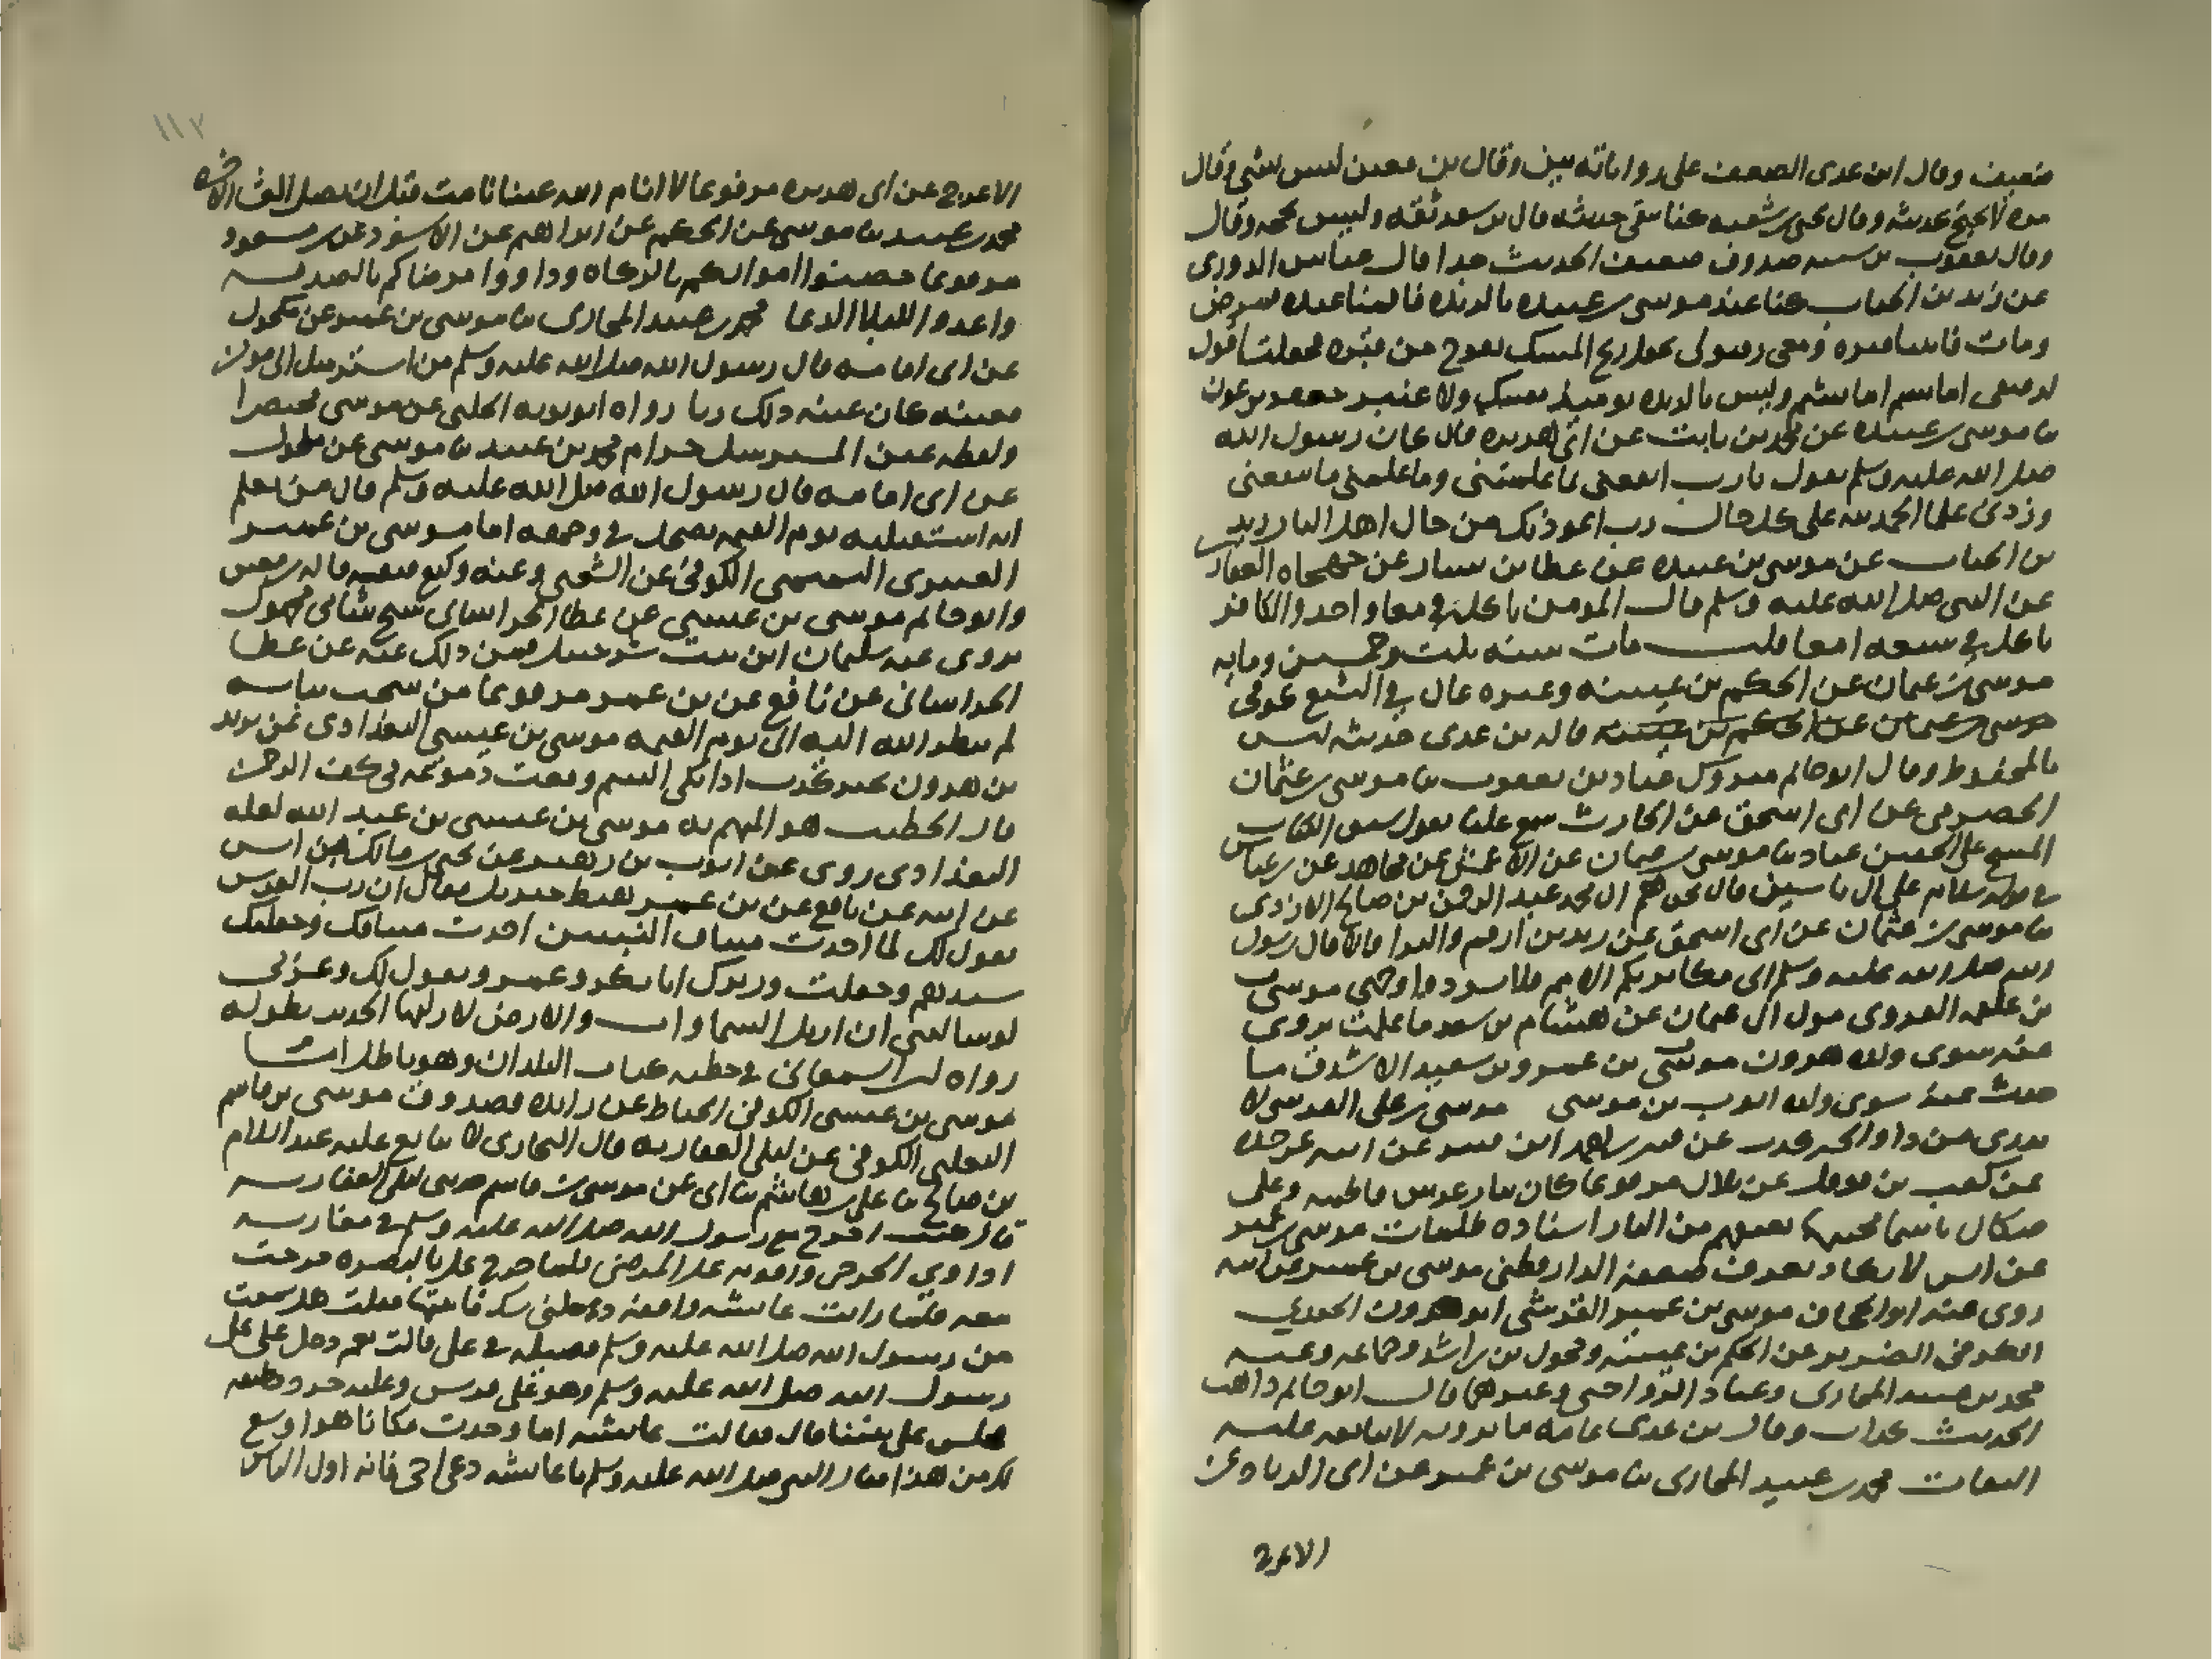 ضعيف وقال ابن عدى الضعف على رواياته بين وقال بن معين ليس بشي وقال
مرة لا يحتج بحديثه وقال يحيى بن سعيد كنا نتقي حديثه قال بن سعد ثقه وليس بحجه وقال
وقال يعقوب بن شيبه صدوق ضعيف الحديث جدا قال عباس الدورى
عن زيد بن الحباب كنا عند موسى بن عبيده بالربذه فاقمنا عنده فمرض
ومات فاتينا قبره ومعي رسولى فجعل ريح المسك يفوح من قبره فجعلت اقول
لرفيقى اما تشم اما تشم وليس بالربذه يومئذ مسك ولا عنبر جعفر بن عون
نا موسى بن عبيده عن محمد بن ثابت عن ابي هريره قال كان رسول الله
صلى الله عليه وسلم يقول يا رب انفعنى بما علمتنى وعلمني ما ينفعنى
وزدنى علما الحمد لله على كل حال رب اعوذ بك من حال اهل النار زيد
بن الحباب عن موسى بن عبيده عن عطا بن يسار عن جهجاه الغفارى
عن النبي صلى الله عليه وسلم قال المومن ياكل في معا واحد والكافر
ياكل في سبعه امعا قلت مات سنه ثلث وخمسين ومايه
موسى بن عثمان عن الحكم بن عيينه وغيره غال في التشيع كوفى
قاله بن عدى حديثه ليس
بالمحفوظ وقال ابو حاتم متروك عباد بن يعقوب نا موسى بن عثمان
الحضرمى عن ابى اسحق عن الحارث سمع عليا يقول سبق الكتاب
المسح على الخفين عباد نا موسى بن عثمان عن الاعمش عن مجاهد عن بن عباس
في قوله سلام على ال ياسين قال نحن هم ال محمد عبد الرحمن بن صالح الازدى
نا موسى بن عثمان عن ابى اسحق عن زيد بن ارقم والبرا قالا قال رسول
الله صلى الله عليه وسلم انى مكاثر بكم الامم فلا تسودوا وجهى موسى
بن علقمه الفروى مولى ال عثمان عن هشام بن سعد ما علمت يروى
عنه سوى ولده هرون موسى بن عمرو بن سعيد الاشدق ما
حدث عنه سوى ولده ايوب بن موسى موسى بن على القرشى لا
يدرى من ذا والخبر كذب عن قنبر بن احمد ابن قنبر عن ابيه عن جده
عن كعب بن نوفل عن بلال مرفوعا كان نثار عرس فاطمه وعلى
صكاك باسما محبيهما بعتقهم من النار اسناده ظلمات موسى بن عمير
عن انس لا يكاد يعرف ضعفه الدارقطنى موسى بن عمير عن ابيه
روى عنه ابو الجحاف موسى بن عمير القرشى ابو هرون الجعدي
الكوفى الضرير عن الحكم بن عيينه ومخول بن راشد وجماعه وعنه
محمد بن عبيد المحاربى وعباد الرواجنى وغيرهما قال ابو حاتم ذاهب
الحديث كذاب وقال بن عدى عامه ما يرويه لا يتابعه عليه
الثقات محمد بن عبيد المحاربى نا موسى بن عمير عن ابى الزناد عن
الاعرج
١١٢
الاعرج عن ابى هريره مرفوعا لا انام الله عينا نامت قبل ان تصلى العشا الاخره
محمد بن عبيد نا موسى عن الحكم عن ابراهيم عن الاسود عن بن مسعود
مرفوعا حصنوا اموالكم بالزكاه وداووا مرضاكم بالصدقه
واعدوا للبلا الدعا محمد بن عبيد المحاربى نا موسى بن عمير عن مكحول
عن ابى امامه قال رسول الله صلى الله عليه وسلم من استرسل الى مومن
فغبنه كان غبنه ذلك ربا رواه ابو توبه الحلبى عن موسى مختصرا
ولفظه غبن المسترسل حرام محمد بن عبيد نا موسى عن مكحول
عن ابى امامه قال رسول الله صلى الله عليه وسلم قال من تعلم
ايه استقبلته يوم القيمه تضحك في وجهه اما موسى بن عمير
العنبرى التميمى الكوفى عن الشعبى وعنه وكيع فثقه قاله بن معين
وابو حاتم موسى بن عيسى عن عطا الخراسانى شيخ شامى مجهول
يروى عنه سليمان ابن بنت شرحبيل فمن ذلك عنه عن عطا
الخراسانى عن نافع عن بن عمر مرفوعا من سحب ثيابه
لم ينظر الله اليه الى يوم القيمه موسى بن عيسى البغدادى عن يزيد
بن هرون بخبر كذب اذا بكى اليتيم وقعت دموعه في كف الرحمن
قال الخطيب هو المتهم به موسى بن عيسى بن عبد الله لعله
البغدادى روى عن ايوب بن زهير عن يحيى بن مالك بن انس
عن ابيه عن نافع عن بن عمر هبط جبريل فقال ان رب العرش
يقول لك لما اخذت ميثاق النبيين اخذت ميثاقك وجعلتك
سيدهم وجعلت وزيرك ابا بكر وعمر ويقول لك وعزتى
لو سالتنى ان ازيل السماوات والارض لازلتهما الحديث بطوله
رواه ابن السمعانى في خطبه كتاب البلدان وهو باطل
موسى بن عيسى الكوفى الخياط عن زايده فصدوق موسى بن قاسم
التغلبى الكوفى عن ليلى الغفاريه قال البخارى لا يتابع عليه عبد السلام
بن صالح نا على بن هاشم نا ابى عن موسى بن قاسم حدثتنى ليلى الغفاريه
قالت كنت اخرج مع رسول الله صلى الله عليه وسلم في مغازيه
اداوي الجرحى واقوم على المرضى فلما خرج على بالبصره خرجت
معه فلما رايت عايشه واقفه دخلنى شك فاتيتها فقلت هل سمعت
من رسول الله صلى الله عليه وسلم فضيله في على قالت نعم دخل على على
رسول الله صلى الله عليه وسلم وهو على فرش وعليه جرد قطيفه
فجلس على بيننا قال فقالت عايشه اما وجدت مكانا هو اوسع
لك من هذا فقال النبى صلى الله عليه وسلم يا عايشه دعى اخى فانه اول الناس